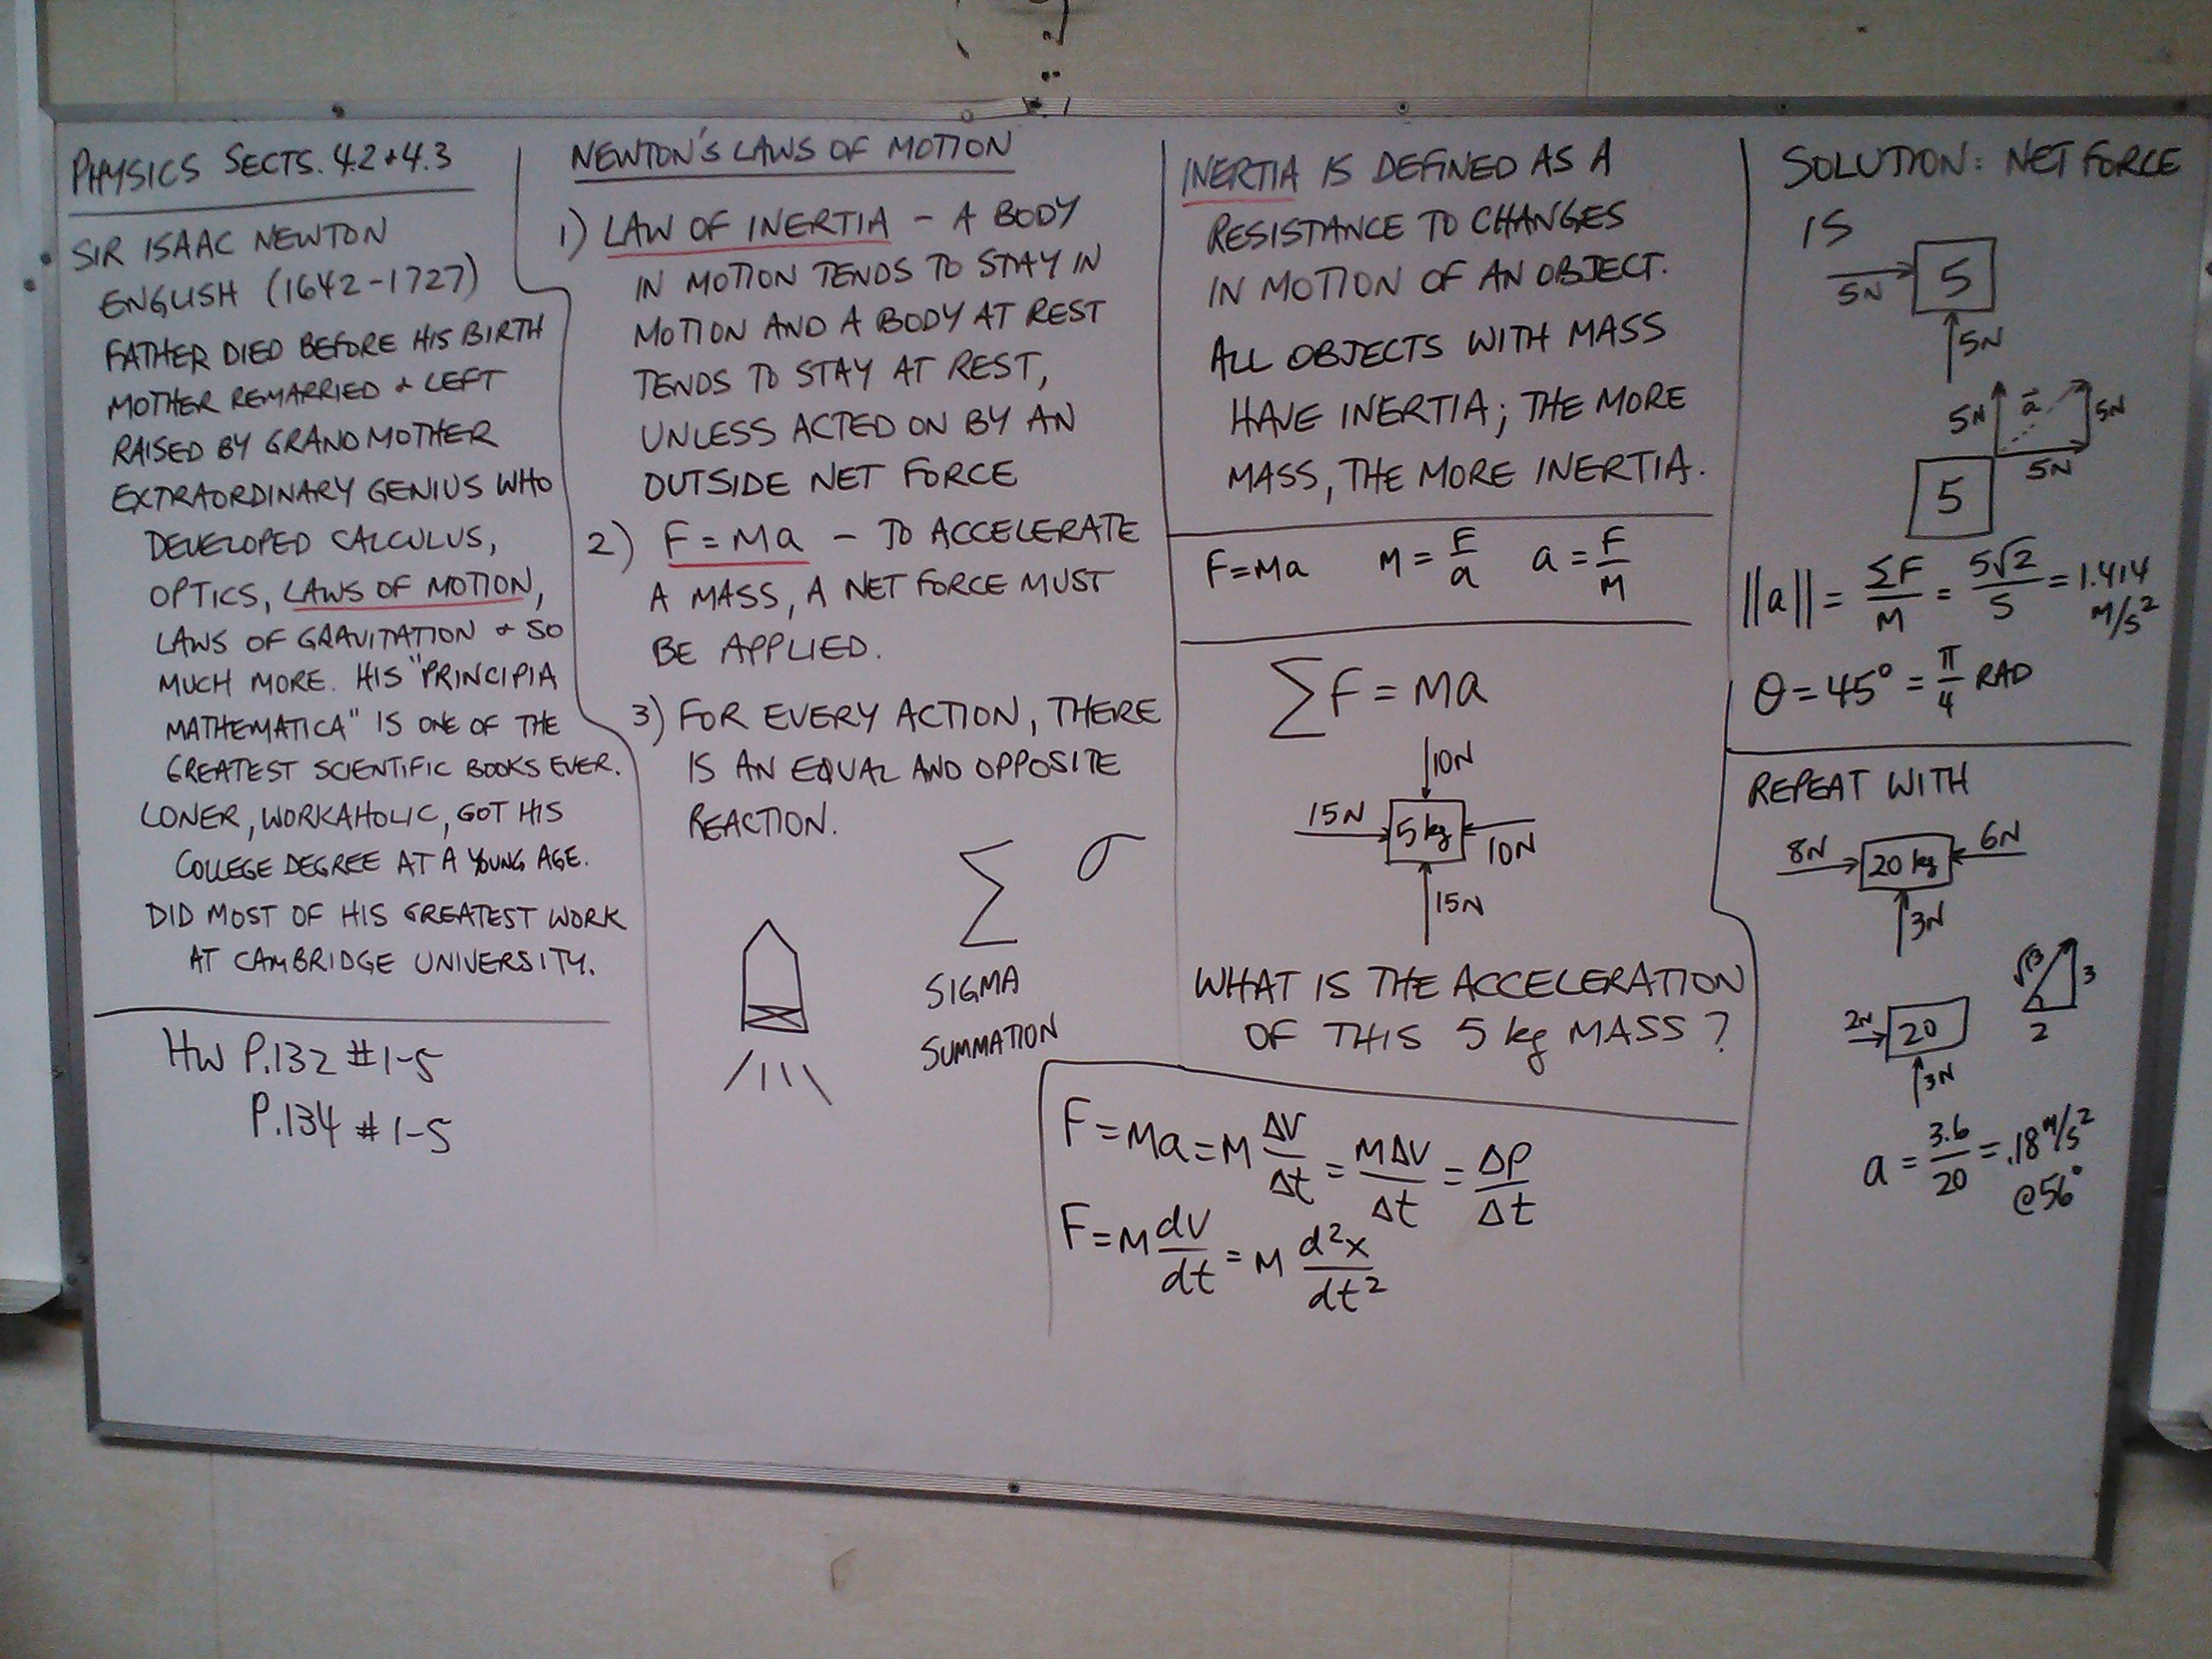 PHYSICS SECTS. 4.2 + 4.3
SIR ISAAC NEWTON
ENGLISH (1642-1727)
FATHER DIED BEFORE HIS BIRTH
MOTHER REMARRIED + LEFT
RAISED BY GRANDMOTHER
EXTRAORDINARY GENIUS WHO
DEVELOPED CALCULUS,
OPTICS, LAWS OF MOTION,
LAWS OF GRAVITATION + SO
MUCH MORE. HIS "PRINCIPIA
MATHEMATICA" IS ONE OF THE
GREATEST SCIENTIFIC BOOKS EVER.
LONER, WORKAHOLIC, GOT HIS
COLLEGE DEGREE AT A YOUNG AGE.
DID MOST OF HIS GREATEST WORK
AT CAMBRIDGE UNIVERSITY.
HW P.132 #1-5
P.134 #1-5
NEWTON'S LAWS OF MOTION
1) LAW OF INERTIA - A BODY
IN MOTION TENDS TO STAY IN
MOTION AND A BODY AT REST
TENDS TO STAY AT REST,
UNLESS ACTED ON BY AN
OUTSIDE NET FORCE
2) F = Ma - TO ACCELERATE
A MASS, A NET FORCE MUST
BE APPLIED.
3) FOR EVERY ACTION, THERE
IS AN EQUAL AND OPPOSITE
REACTION.
Σ σ
SIGMA
SUMMATION
INERTIA IS DEFINED AS A
RESISTANCE TO CHANGES
IN MOTION OF AN OBJECT.
ALL OBJECTS WITH MASS
HAVE INERTIA; THE MORE
MASS, THE MORE INERTIA.
F=Ma M = F/a a = F/M
ΣF = Ma
10N
15N 5 kg 10N
15N
WHAT IS THE ACCELERATION
OF THIS 5 kg MASS?
F = Ma = M ΔV/Δt = MΔV/Δt = ΔP/Δt
F = M dV/dt = M d²x/dt²
SOLUTION: NET FORCE
IS
5N 5
5N
5N a 5N
5N
5
||a|| = ΣF/M = 5√2/5 = 1.414
M/S²
θ = 45° = π/4 RAD
REPEAT WITH
8N 20 kg 6N
3N
√13 3
2
2N 20
3N
a = 3.6/20 = .18 M/S²
@56°